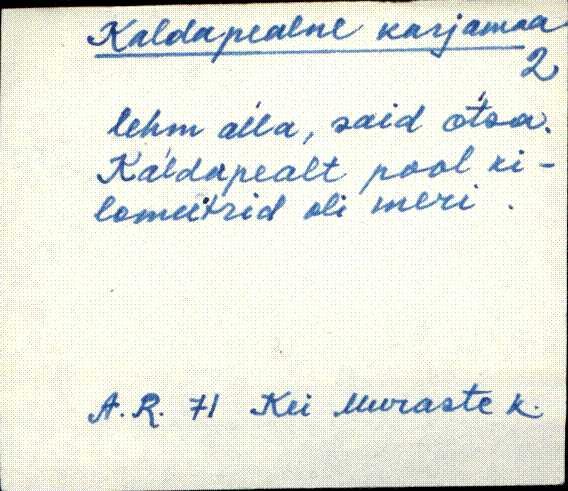 Kaldapealne karjamaa
2
lehm alla, said otsa.
Kaldapealt pool ki-
lomeetrid oli meri.
A.R. 71 Kei Muraste k.